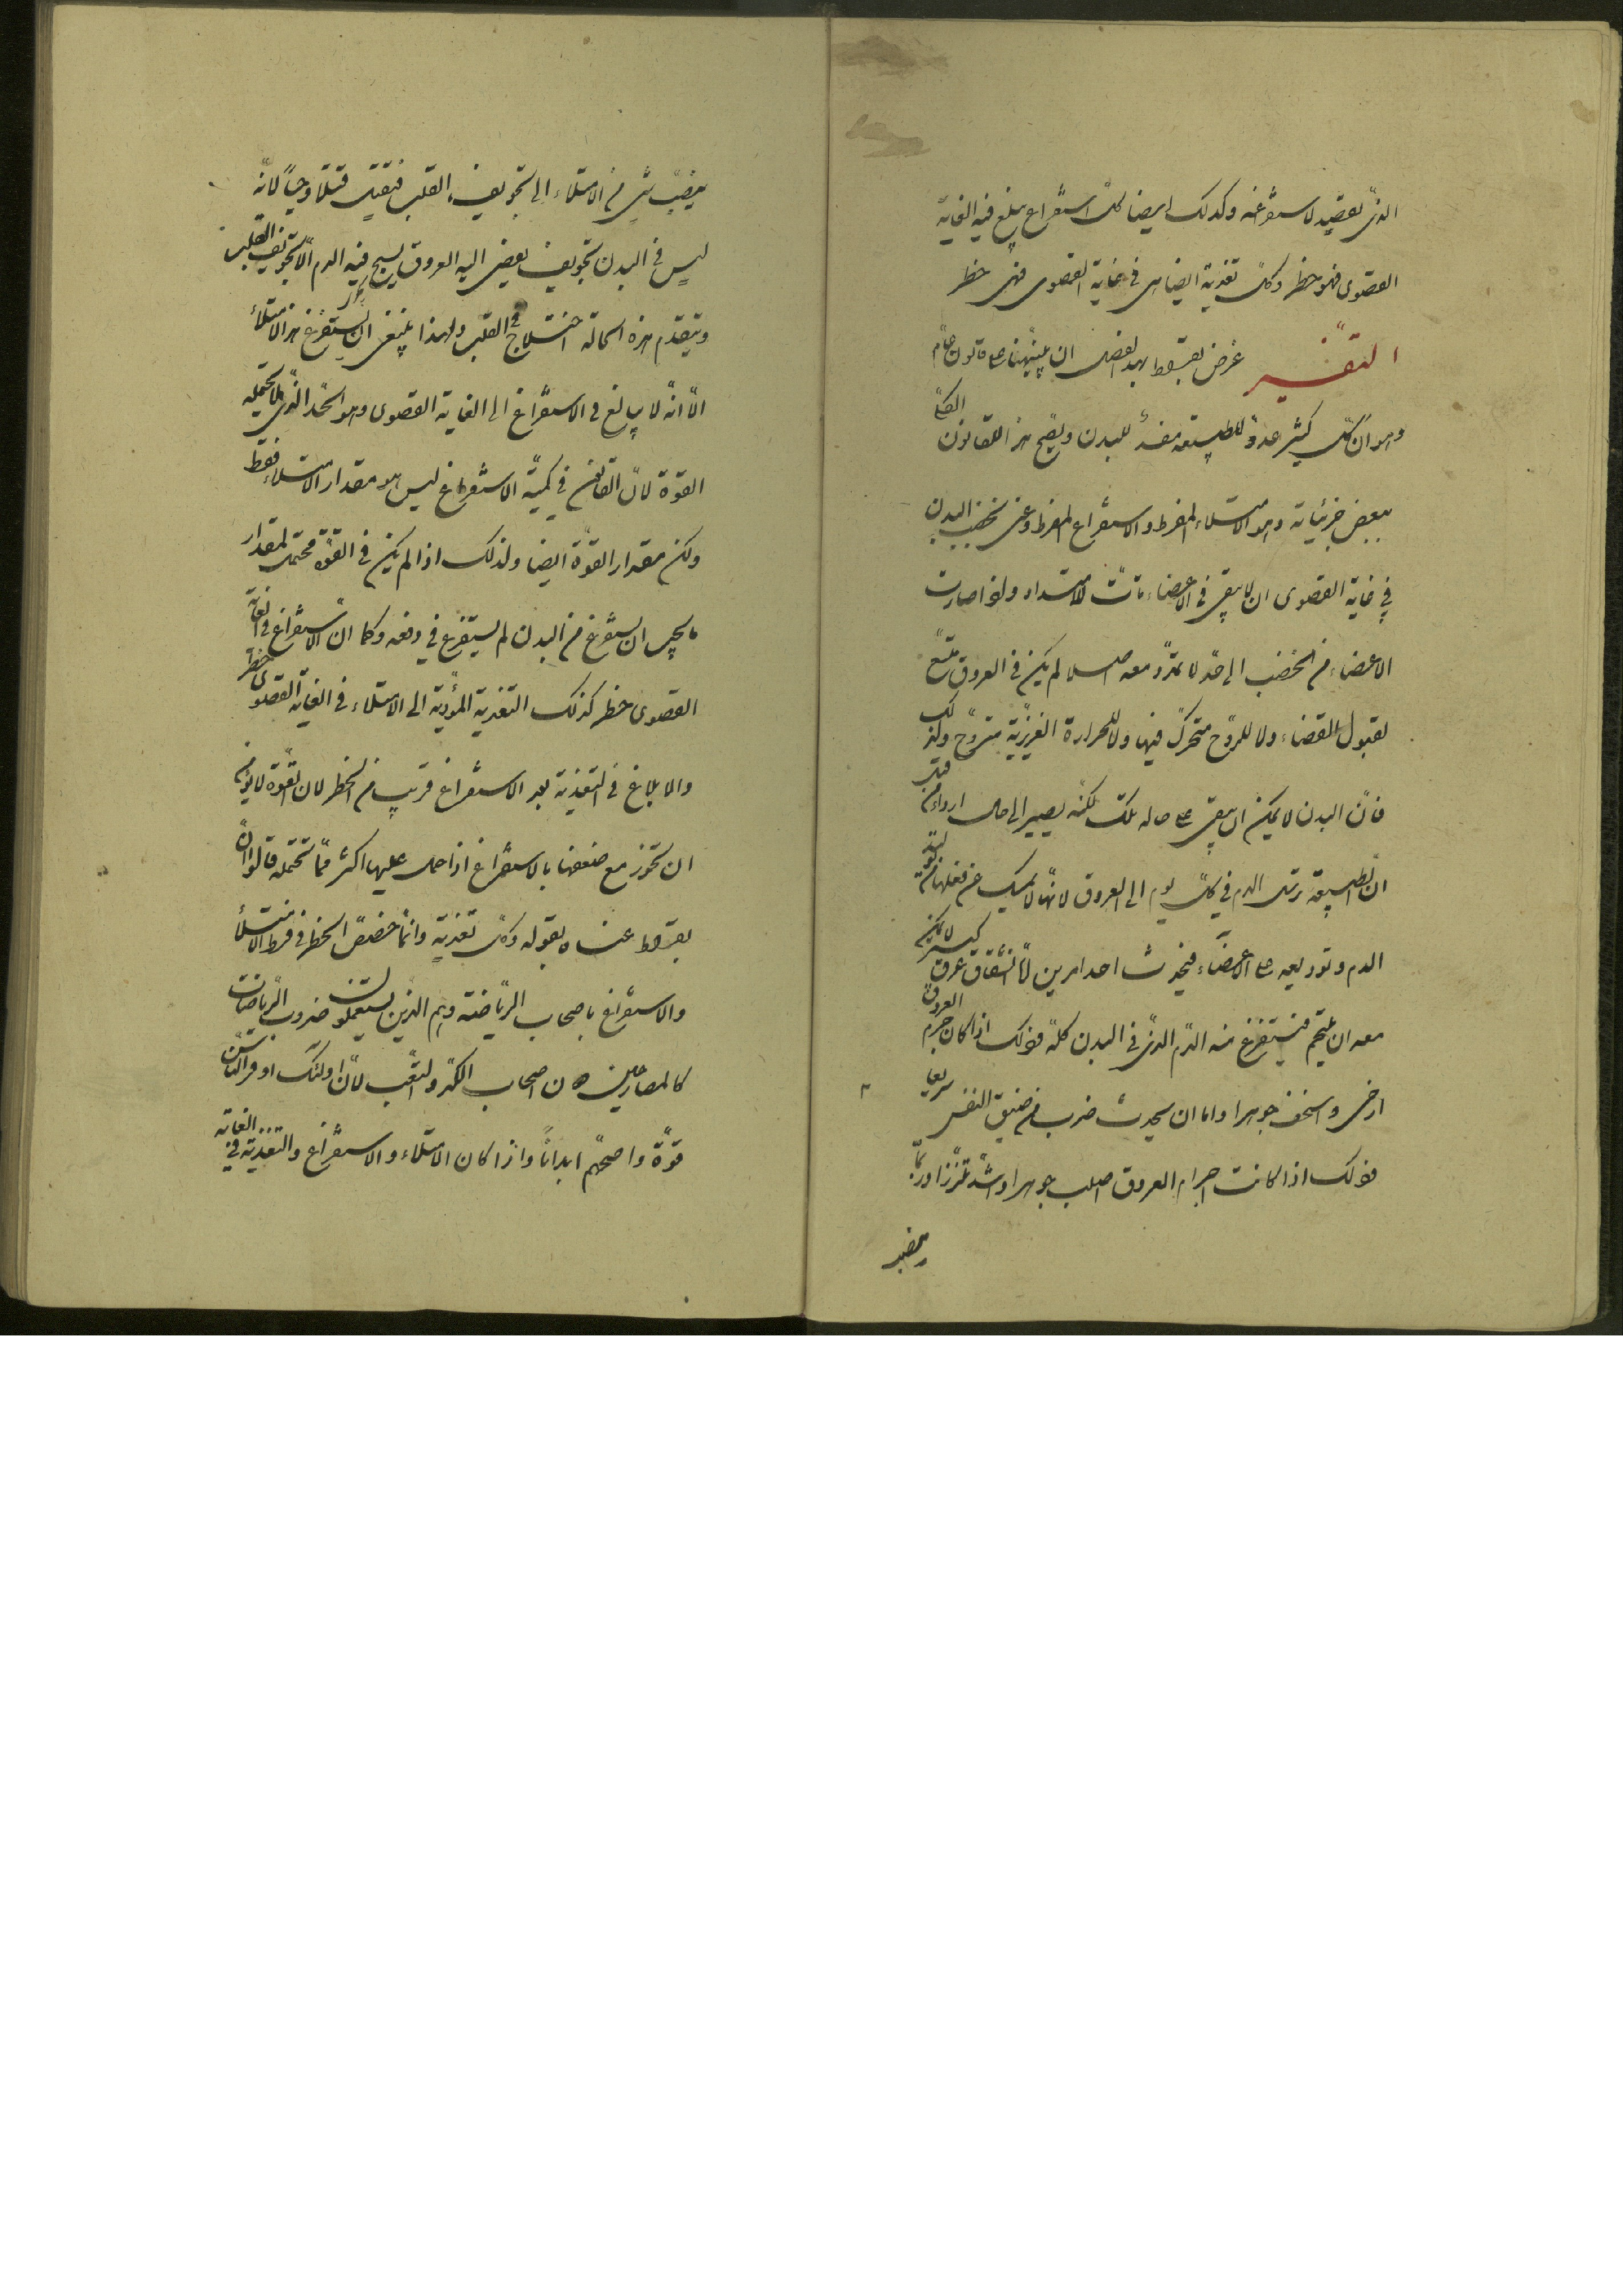 الذى يقصد لاستفراغه وكذلك ايضا كل استفراغ يبلغ فيه الغاية
القصوى فهو خطر وكل تغذية ايضا هى فى غاية القصوى فهى خطر
التفسير غرض بقراط بهذا الفصل ان ينبهنا على قانون عام
وهو ان كل كثير عدو للطبيعة مفسد للبدن ويصحح هذا القانون الكلى
ببعض جزئياته وهو الامتلاء المفرط والاستفراغ المفرط وعنى بخصب البدن
فى غاية القصوى ان لا يبقى فى الاعضاء تأت للامتداد واذا صارت
الاعضاء من الخصب الى حد لا تمدد معه اصلا لم يكن فى العروق متسع
لقبول الفضاء ولا للروح متحرك فيها ولا للحرارة الغريزية متروح ولذلك
فان البدن لا يمكن ان يبقى على حاله تلك لكنه يصير الى حال اردأ من قبل
ان الطبيعة ترسل الدم فى كل يوم الى العروق لانها لا تمسك عن فعلها من توليد
الدم وتوزيعه على الاعضاء فيحدث احد امرين اما انشقاق عرق كبير لا يمكن
معه ان يلتحم فيستفرغ منه الدم الذى فى البدن كله وذلك اذا كان جرم العروق
ارخى واسخف جوهرا واما ان يحدث ضرب من ضيق النفس سريعا
وذلك اذا كانت اجرام العروق اصلب جوهرا واشد تلززا وربما
ينصب
ينصب شىء من الامتلاء الى تجويف القلب فيقتل قتلا وحيا لانه
ليس فى البدن تجويف يفضى اليه العروق يسيح فيه الدم الا تجويف القلب
ويتقدم هذه الحالة اختلاج فى القلب ولهذا ينبغى ان يستفرغ هذا الامتلاء
الا انه لا يبالغ فى الاستفراغ الى الغاية القصوى وهو الحد الذى لا تحتمله
القوة لان القانون فى كمية الاستفراغ ليس هو مقدار الامتلاء فقط
ولكن مقدار القوة ايضا ولذلك اذا لم يكن فى القوة محتمل لمقدار
ما يجب ان يستفرغ من البدن لم يستفرغ فى دفعه وكما ان الاستفراغ فى الغاية
القصوى خطر كذلك التغذية المؤدية الى الامتلاء فى الغاية القصوى خطر
والابلاغ فى التغذية بعد الاستفراغ قريب من الخطر لان القوة لا يؤمن
ان تخور مع ضعفها بالاستفراغ اذا حمل عليها اكثر مما تحتمله قالوا ان
بقراط عناه بقوله وكل تغذية وانما خصص الخطر فى فرط الامتلاء
والاستفراغ باصحاب الرياضة وهم الذين يستعملون ضروب الرياضات
كالمصارعين دون اصحاب الكد والتعب لان اولئك اوفر الناس
قوة واصحهم ابدانا واذا كان الامتلاء والاستفراغ والتغذية فى الغاية